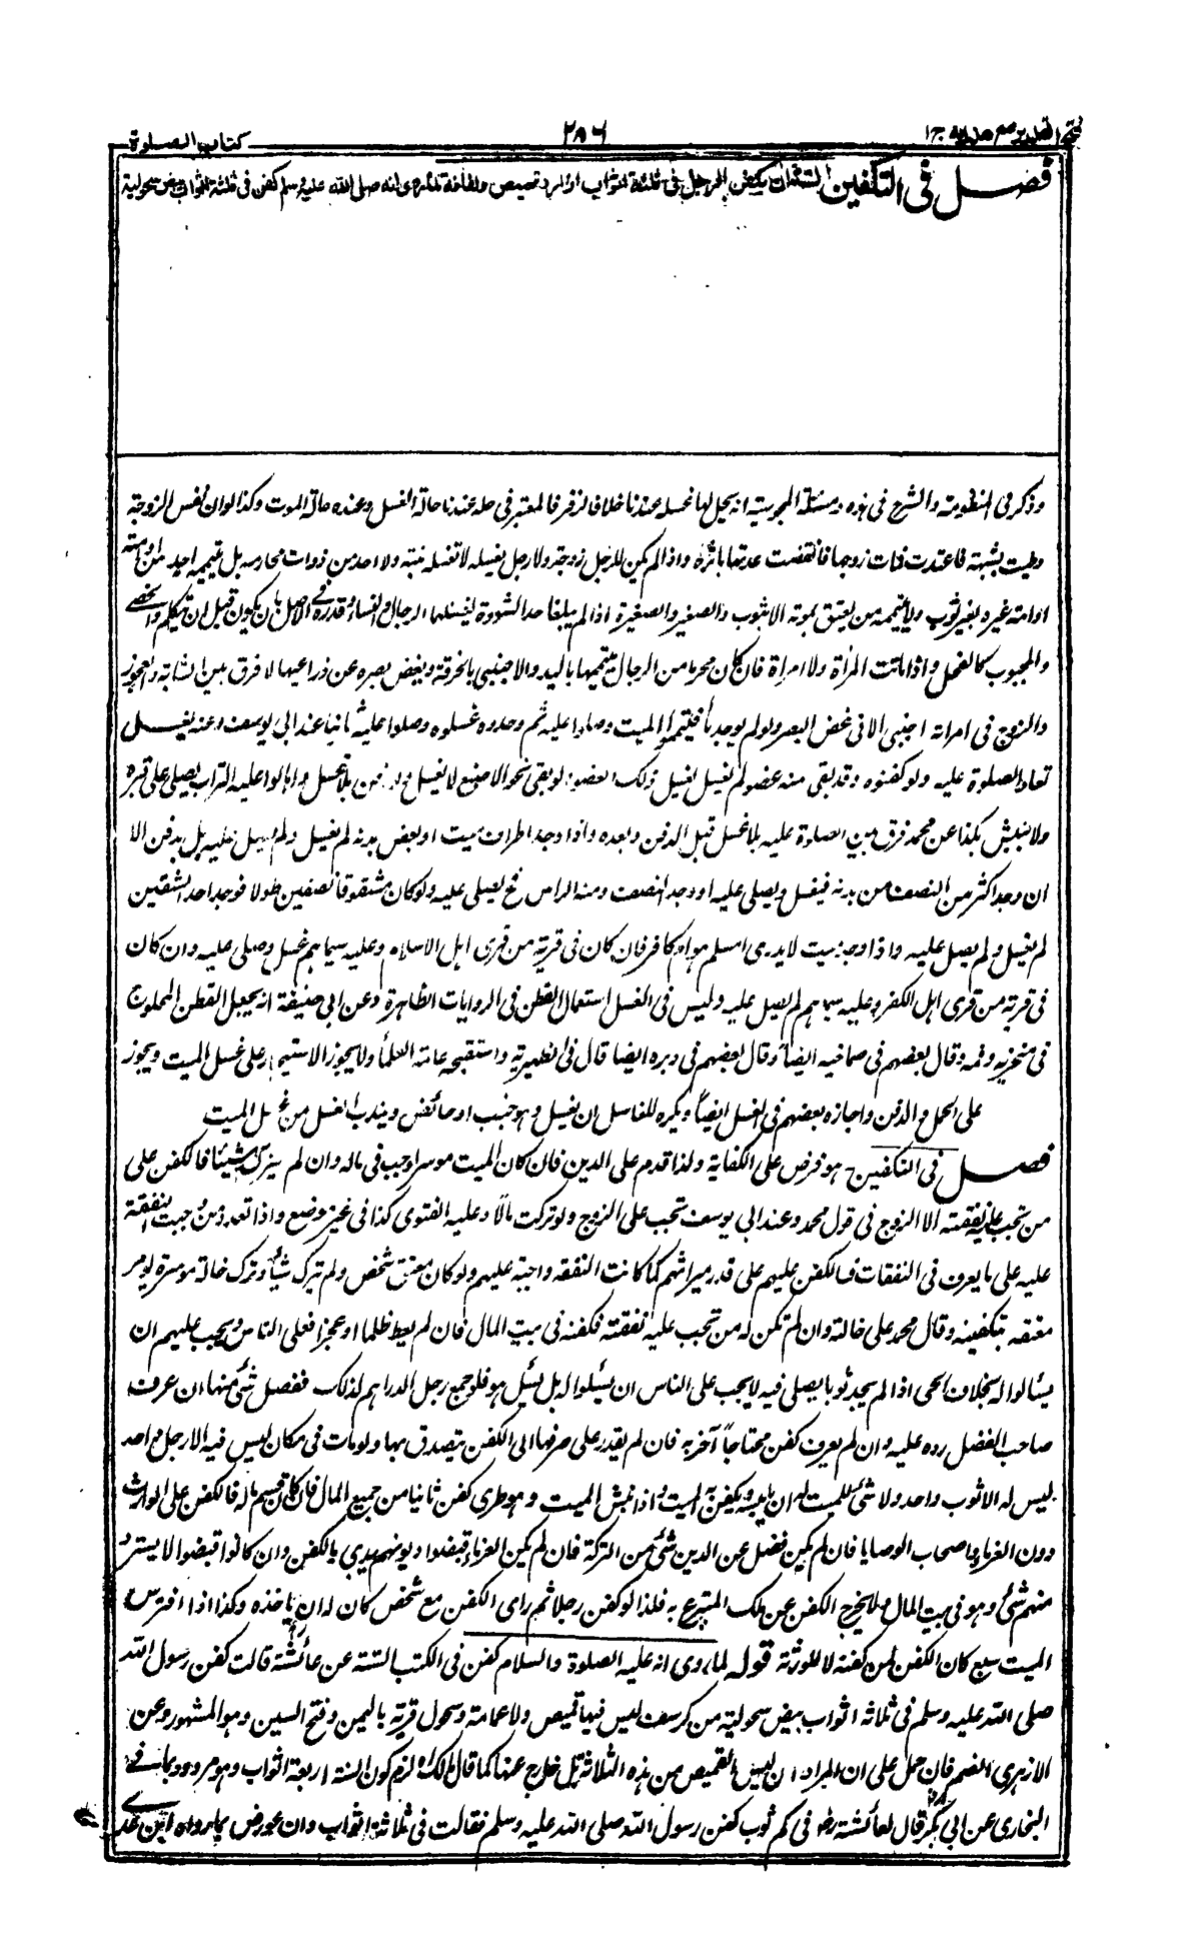 فتح القدير مع هدايه ج١
٢٨٦
كتاب الصلوة
فصل فى التكفين السنة ان يكفن الرجل فى ثلثة اثواب ازار وقميص ولفافة لما روى انه صلى الله عليه وسلم كفن فى ثلثة اثواب بيض سحولية
وذكر فى المنظومة والشرح فى هذه ومسئلة المجوسية انه يحل لها غسله عندنا خلافا لزفر فالمعتبر فى حله عندنا حالة الغسل وعنده حالة الموت وكذا لو ان نفس الزوجة
وطيت بشبهة فاعتدت فمات زوجها فانقضت عدتها باثره واذا لم يكن للرجل زوجة ولا رجل يغسله لا تغسله بنته ولا احد من ذوات محارمه بل تيممه احداهن او امته
او امة غيره بغير ثوب ولا تيممه من يعتق بموته الا بثوب والصغير والصغيرة اذا لم يبلغا حد الشهوة يغسلهما الرجال والنساء وقدره فى الاصل بان يكون قبل ان يتكلم والخصى
والمجبوب كالفحل واذا ماتت المرأة ولا امرأة فان كان محرما من الرجال يممها باليد والاجنبى بالخرقة ويغض بصره عن ذراعيها لا فرق بين الشابة والعجوز
والزوج فى امراته اجنبى الا فى غض البصر ولو لم يوجد ماء فيمموا الميت وصلوا عليه ثم وجدوه غسلوه وصلوا عليه ثانيا عند ابى يوسف وعنه يغسل
تعاد الصلوة عليه ولو كفنوه وقد بقى منه عضو لم يغسل يغسل ذلك العضو ولو بقى نحو الاصبع لا يغسل ولو دفن بلا غسل واهالوا عليه التراب يصلى على قبره
ولا ينبش هكذا عن محمد فرق بين الصلوة عليه بلا غسل قبل الدفن وبعده واذا وجد اطراف ميت او بعض بدنه لم يغسل ولم يصل عليه بل يدفن الا
ان وجد اكثر من النصف من بدنه فيغسل ويصلى عليه او وجد النصف ومنه الراس فح يصلى عليه ولو كان مشقوقا نصفين طولا فوجد احد الشقين
لم يغسل ولم يصل عليه واذا وجد ميت لا يدرى امسلم هو ام كافر فان كان فى قرية من قرى اهل الاسلام وعليه سيماهم غسل وصلى عليه وان كان
فى قرية من قرى اهل الكفر وعليه سيماهم لم يصل عليه وليس فى الغسل استعمال القطن فى الروايات الظاهرة وعن ابى حنيفة انه يجعل القطن المحلوج
فى منخريه وفمه وقال بعضهم فى صماخيه ايضا وقال بعضهم فى دبره ايضا قال فى الظهيرية واستقبحه عامة العلماء ولا يجوز الاستيجار على غسل الميت ويجوز
على الحمل والدفن واجازه بعضهم فى الغسل ايضاً ويكره للغاسل ان يغسل وهو جنب او حائض ويندب الغسل من غسل الميت
فصل فى التكفين هو فرض على الكفاية ولذا قدم على الدين فان كان الميت موسرا وجب فى ماله وان لم يترك شيئا فالكفن على
من تجب عليه نفقته الا الزوج فى قول محمد وعند ابى يوسف تجب على الزوج ولو تركت مالًا وعليه الفتوى كذا فى غير موضع واذا تعدد من وجبت النفقة
عليه على ما يعرف فى النفقات فالكفن عليهم على قدر ميراثهم كما كانت النفقة واجبة عليهم ولو كان معتق شخص ولم يترك شيأ وترك خالة موسرة يومر
معتقه بتكفينه وقال محمد على خالته وان لم تكن له من تجب عليه نفقته فكفنه فى بيت المال فان لم يعط ظلما او عجزا فعلى الناس ويجب عليهم ان
يسألوا له بخلاف الحى اذا لم يجد ثوبا يصلى فيه لا يجب على الناس ان يسئلوا له بل يسئل هو فلو جمع رجل الدراهم لذلك ففضل شئ منها ان عرف
صاحب الفضل رده عليه وان لم يعرف كفن محتاجاً آخر به فان لم يقدر على صرفها الى الكفن يتصدق بها ولو مات فى مكان ليس فيه الا رجل واحد
ليس له الا ثوب واحد ولا شئ للميت له ان يلبسه ولا يكفن به الميت واذا نبش الميت وهو طرى كفن ثانيا من جميع المال فان كان قسم ماله فالكفن على الوارث
دون الغرماء واصحاب الوصايا فان لم يكن فضل عن الدين شئ من التركة فان لم يكن الغرماء قبضوا ديونهم بدئ بالكفن وان كانوا قبضوا لا يسترد
منهم شئ وهو فى بيت المال ولا يخرج الكفن عن ملك المتبرع به فلذا لو كفن رجلا ثم راى الكفن مع شخص كان له ان ياخذه وكذا اذا افترس
الميت سبع كان الكفن لمن كفنه لا للورثة قوله لما روى انه عليه الصلوة والسلام كفن فى الكتب الستة عن عائشة قالت كفن رسول الله
صلى الله عليه وسلم فى ثلاثة اثواب بيض سحولية من كرسف ليس فيها قميص ولا عمامة وسحول قرية باليمن وفتح السين وهو المشهور وعن
الازهرى الضم فان حمل على ان المراد ان ليس القميص من هذه الثلاثة بل خارج عنها كما قال مالك لزم كون السنة اربعة اثواب وهو مردود بما فى
البخارى عن ابى بكر قال لعائشة رض فى كم ثوب كفن رسول الله صلى الله عليه وسلم فقالت فى ثلاثة اثواب وان عورض بما رواه ابن عدى